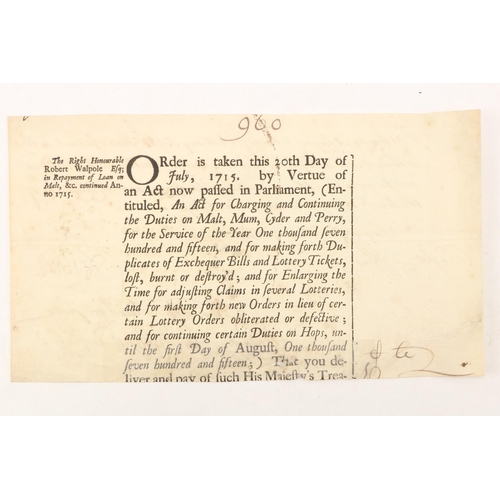 960
The Right Honourable
Robert Walpole Esq;
in Repayment of Loan on
Malt, &c. continued An-
no 1715.
ORder is taken this 20th Day of
July, 1715. by Vertue of
an Act now passed in Parliament, (En-
tituled, An Act for Charging and Continuing
the Duties on Malt, Mum, Cyder and Perry,
for the Service of the Year One thousand seven
hundred and fifteen, and for making forth Du-
plicates of Exchequer Bills and Lottery Tickets,
lost, burnt or destroy'd; and for Enlarging the
Time for adjusting Claims in several Lotteries,
and for making forth new Orders in lieu of cer-
tain Lottery Orders obliterated or defective;
and for continuing certain Duties on Hops, un-
til the first Day of August, One thousand
seven hundred and fifteen;) That you de-
liver and pay of such His Majesty's Trea-